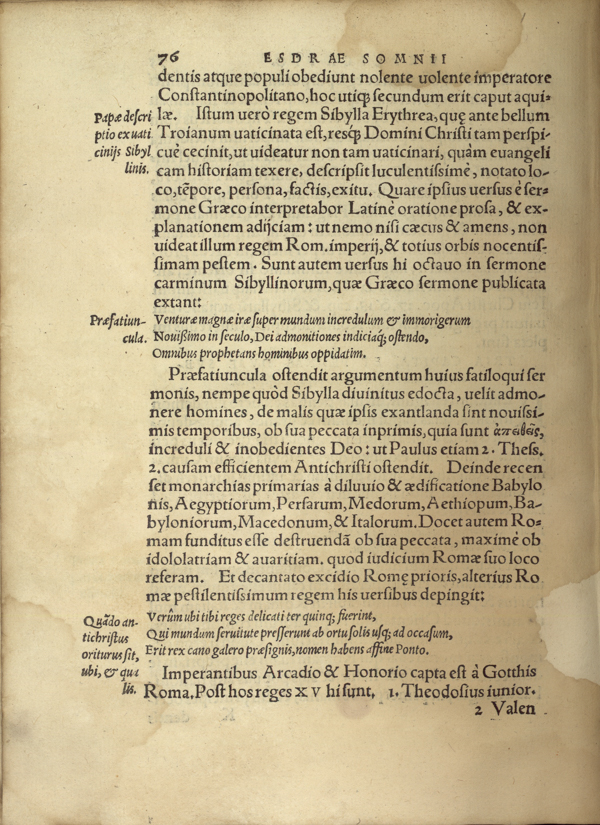 76 ESDRAE SOMNII
dentis atque populi obediunt nolente uolente imperatore
Constantinopolitano, hoc utiqȝ secundum erit caput aqui-
læ. Istum uerò regem Sibylla Erythrea, quę ante bellum
Troianum uaticinata est, resqȝ Domini Christi tam perspi-
cuè cecinit, ut uideatur non tam uaticinari, quàm euangeli
cam historiam texere, descripsit luculentissimè, notato lo-
co, tẽpore, persona, factis, exitu. Quare ipsius uersus è ser-
mone Græco interpretabor Latinè oratione prosa, & ex-
planationem adijciam: ut nemo nisi cæcus & amens, non
uideat illum regem Rom. imperij, & totius orbis nocentis-
simam pestem. Sunt autem uersus hi octauo in sermone
carminum Sibyllinorum, quæ Græco sermone publicata
extant:
Papæ descri
ptio ex uati
cinijs Sibyl
linis.
Præfatiun-
cula.
Venturæ magnæ iræ super mundum incredulum & immorigerum
Nouißimo in seculo, Dei admonitiones indiciaq́; ostendo,
Omnibus prophetans hominibus oppidatim.
Præfatiuncula ostendit argumentum huius fatiloqui ser
monis, nempe quòd Sibylla diuinitus edocta, uelit admo-
nere homines, de malis quæ ipsis exantlanda sint nouissi-
mis temporibus, ob sua peccata inprimis, quia sunt ἀπειθεῖς,
increduli & inobedientes Deo: ut Paulus etiam 2. Thess.
2. causam efficientem Antichristi ostendit. Deinde recen
set monarchias primarias à diluuio & ædificatione Babylo
nis, Aegyptiorum, Persarum, Medorum, Aethiopum, Ba-
byloniorum, Macedonum, & Italorum. Docet autem Ro-
mam funditus esse destruendã ob sua peccata, maximè ob
idololatriam & auaritiam. quod iudicium Romæ suo loco
referam. Et decantato excidio Romę prioris, alterius Ro
mæ pestilentissimum regem his uersibus depingit:
Quãdo an-
tichristus
oriturus sit,
ubi, & qua
lis.
Verùm ubi tibi reges delicati ter quinq; fuerint,
Qui mundum seruitute presserunt ab ortu solis usq; ad occasum,
Erit rex cano galero præsignis, nomen habens affine Ponto.
Imperantibus Arcadio & Honorio capta est à Gotthis
Roma. Post hos reges XV hi sunt. 1. Theodosius iunior.
2 Valen